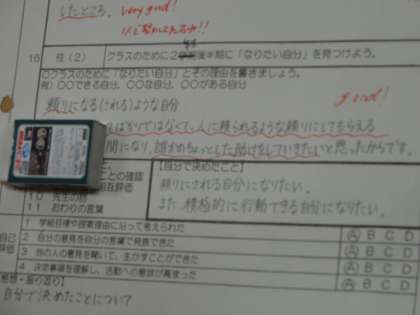 したところ、very good!
16 柱(2) クラスのために2後半期に「なりたい自分」を見つけよう。
○クラスのために「なりたい自分」とその理由を書きましょう。
例)○○できる自分、○○な自分、○○がある自分
頼りになる(される)ような自分
good!
ばかりではなくて、人に頼られるような頼りにしてもらえる
人間になり、誰かのちょっとした助けをしていきたいと思ったからです。
との確認
相互評価
10 先生の話
11 おわりの言葉
【自分で決めたこと】
頼りにされる自分になりたい。
また、積極的に行動できる自分になりたい。
自己評価
1 学級目標や提案理由に沿って考えられた A B C D
2 自分の意見を自分の言葉で発表できた A B C D
3 他の人の意見を聞いて、生かすことができた A B C D
4 決定事項を理解し、活動への意欲が高まった A B C D
【感想・振り返り】
自分で決めたことについて